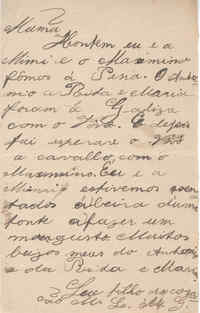 Mamã
Hontem eu e a
Mimi e o Maximino
fômos á Pena. O Anto
nio a Prida e Maria
foram á Galiza
com o
fui esperar o
a cavallo, com o
Maximino. Eu e a
Mimi estivemos sen
tados á beira duma
fonte a fazer um
magusto. Muitos
beijos meus do Antonio
e da Prida e Maria
Seu filho